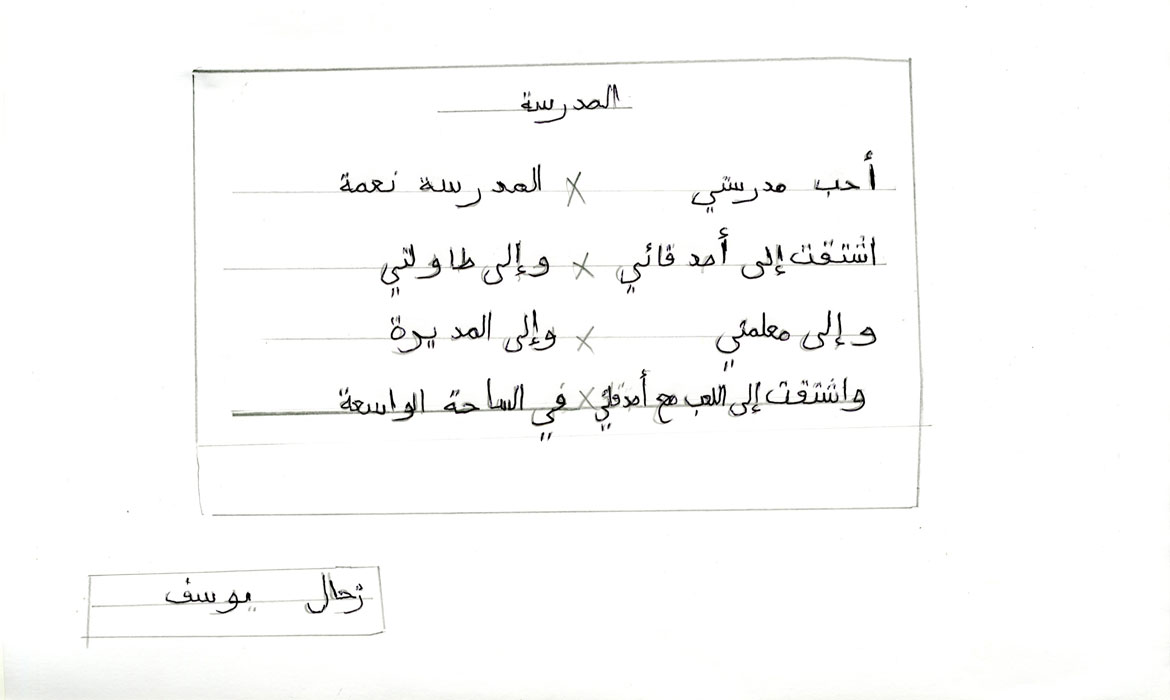 المدرسة
أحب مدرستي × المدرسة نعمة
اشتقت إلى أصدقائي × وإلى طاولتي
وإلى معلمتي × وإلى المديرة
واشتقت إلى اللعب مع أصدقائي × في الساحة الواسعة
يوسف